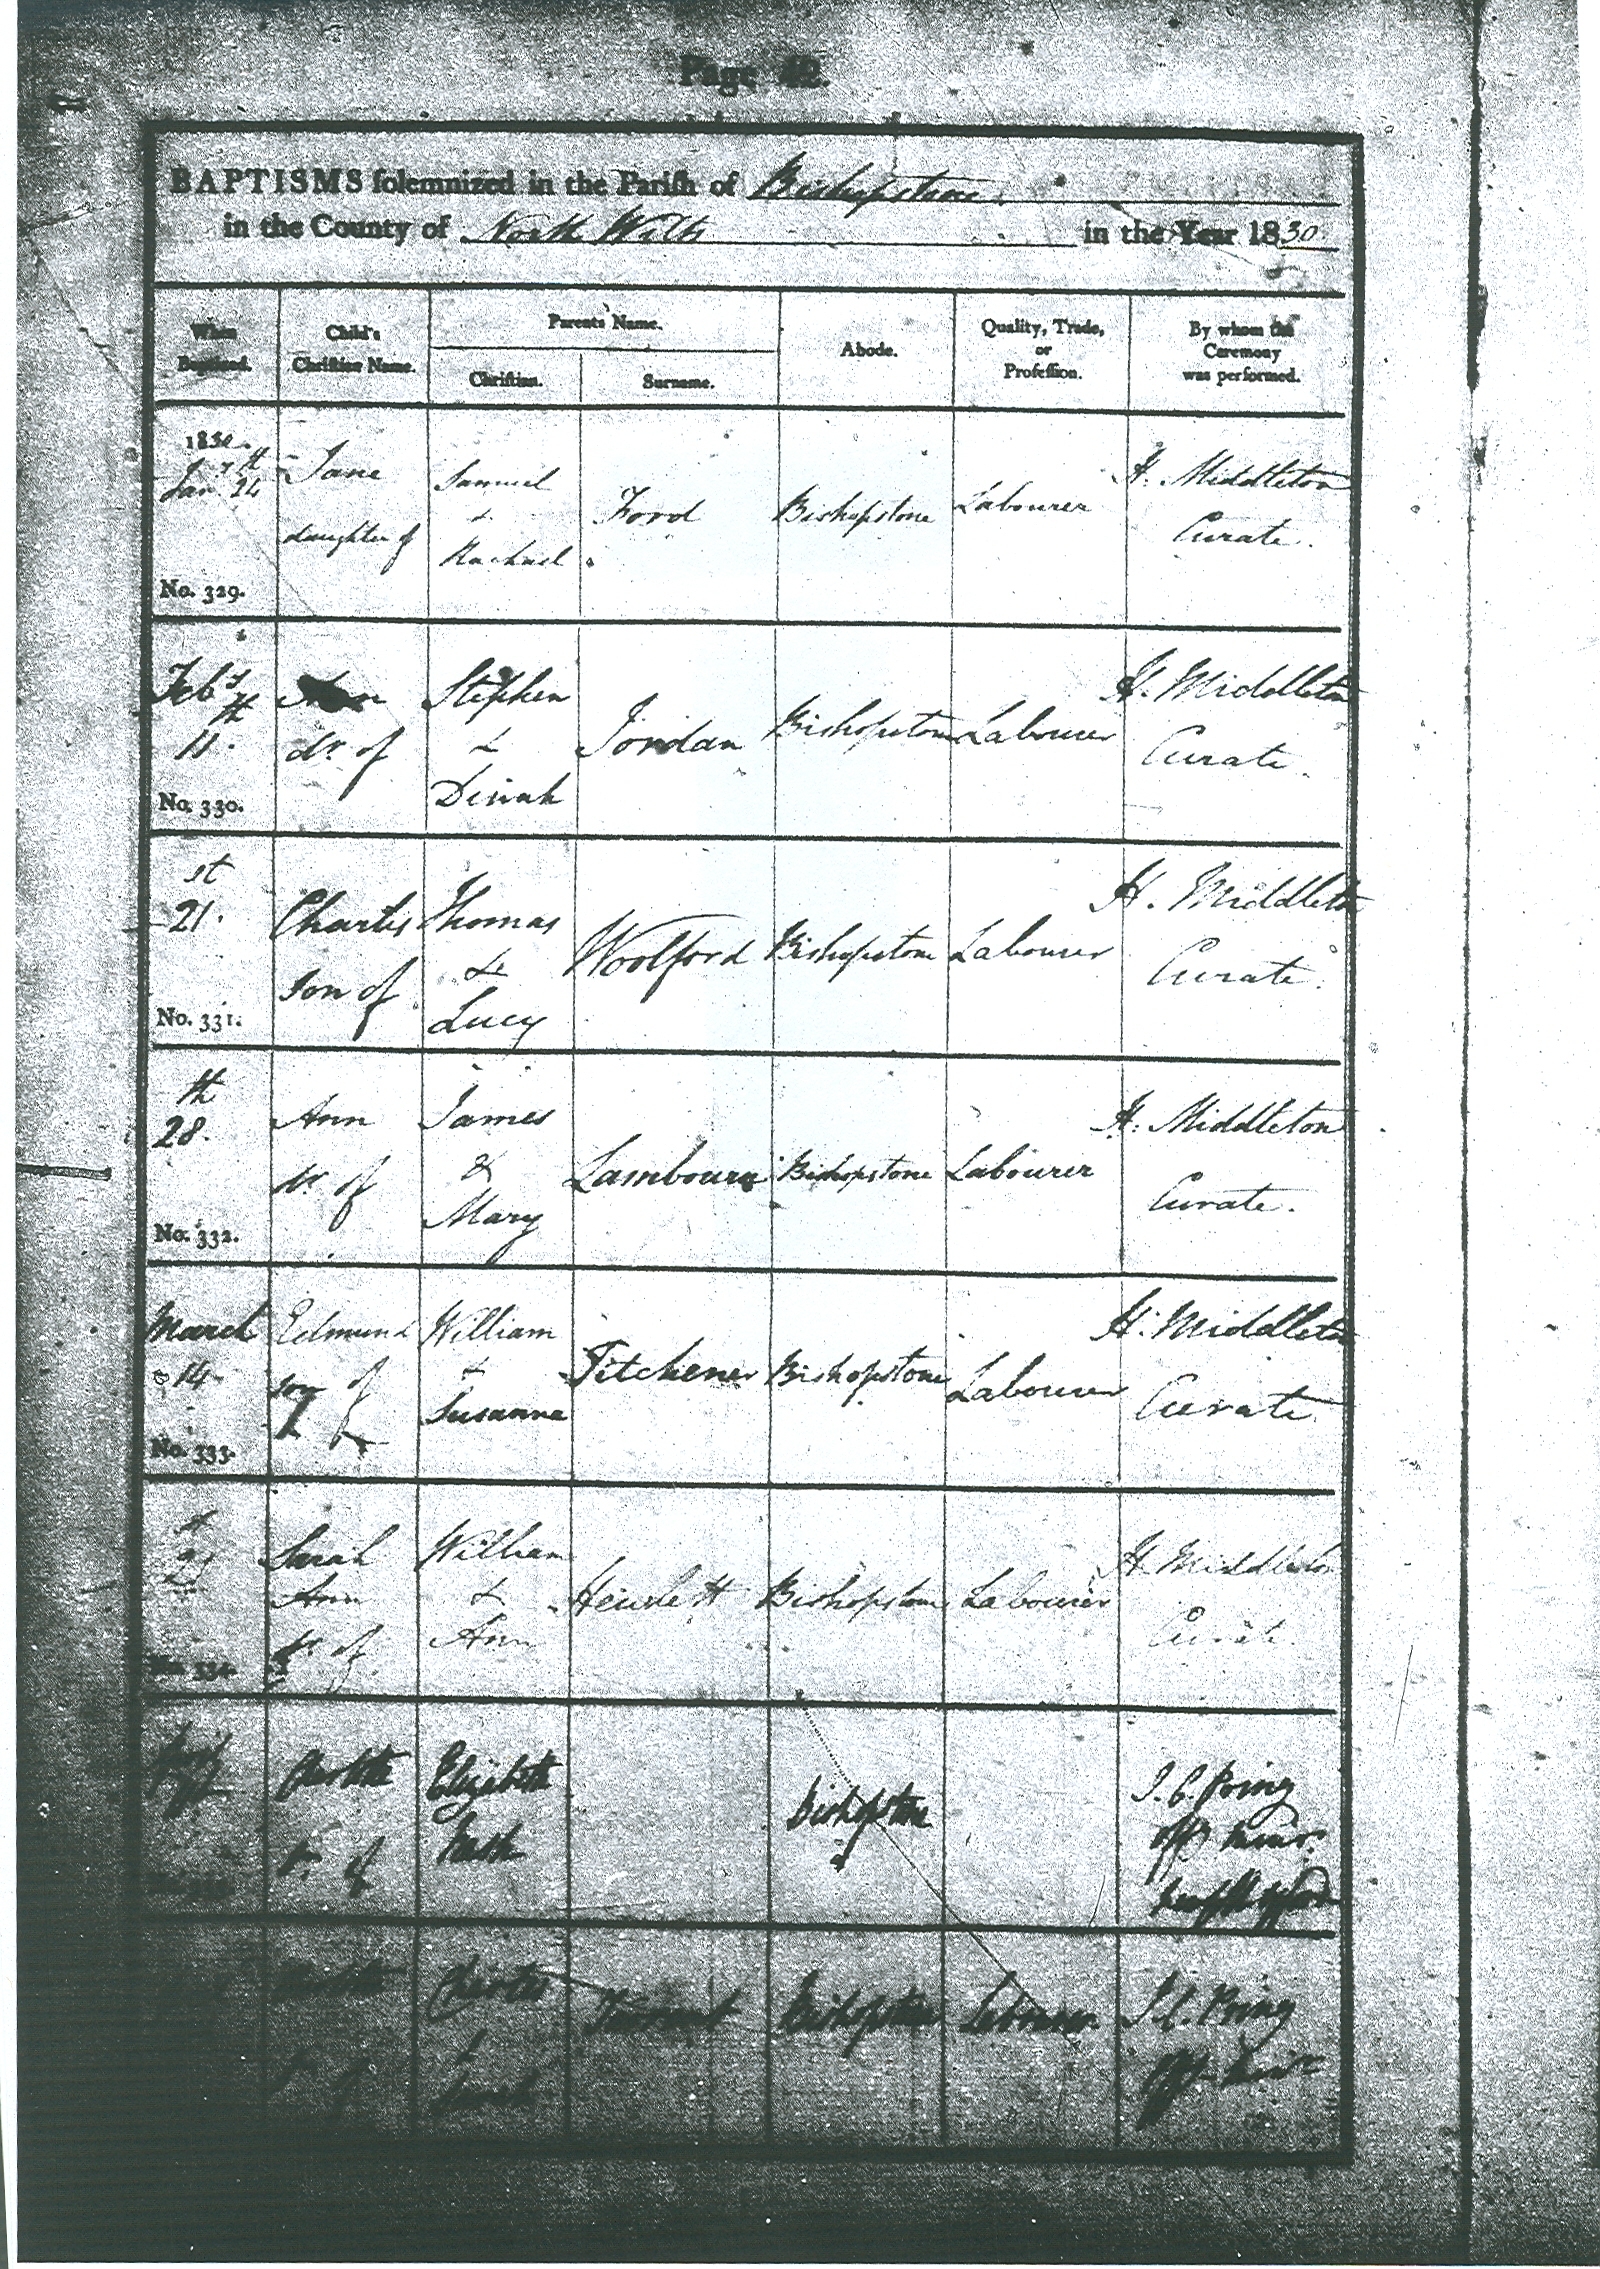 Page 42.
BAPTISMS solemnized in the Parish of Bishopstone
in the County of North Wilts in the Year 1830
When Baptized.
Child's Christian Name.
Parents Name.
Christian.
Surname.
Abode.
Quality, Trade, or Profession.
By whom the Ceremony was performed.
1830
Jan. 24th
No. 329.
Jane
daughter of
Samuel
&
Rachael
Ford
Bishopstone
Labourer
H. Middleton
Curate.
Feby
11th
No. 330.
dr. of
Stephen
&
Dinah
Jordan
Bishopstone
Labourer
H. Middleton
Curate.
21st
No. 331.
Charles
son of
Thomas
&
Lucy
Woolford
Bishopstone
Labourer
H. Middleton
Curate.
28th
No. 332.
Ann
dr. of
James
&
Mary
Lambourn
Bishopstone
Labourer
H. Middleton
Curate.
March
14
No. 333.
Edmund
son of
William
&
Susanna
Titchener
Bishopstone
Labourer
H. Middleton
Curate.
21st
No. 334.
Sarah
Ann
dr. of
William
&
Ann
Hewlett
Bishopstone
Labourer
H. Middleton
Curate.
of
Elizabeth
Bishopstone
J. C. Pring
offg minr.
Charles
&
Bishopstone
Labourer
J. C. Pring
offg minr